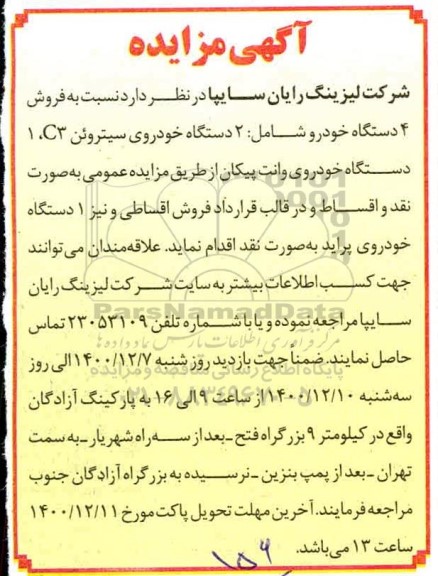 آگهی مزایده
شرکت لیزینگ رایان سایپا در نظر دارد نسبت به فروش
۴ دستگاه خودرو شامل: ۲ دستگاه خودروی سیتروئن C۳، ۱
دستگاه خودروی وانت پیکان از طریق مزایده عمومی به صورت
نقد و اقساط و در قالب قرارداد فروش اقساطی و نیز ۱ دستگاه
خودروی پراید به صورت نقد اقدام نماید. علاقه‌مندان می‌توانند
جهت کسب اطلاعات بیشتر به سایت شرکت لیزینگ رایان
سایپا مراجعه نموده و یا با شماره تلفن ۲۳۰۵۳۱۰۹ تماس
حاصل نمایند. ضمناً جهت بازدید روز شنبه ۱۴۰۰/۱۲/۷ الی روز
سه‌شنبه ۱۴۰۰/۱۲/۱۰ از ساعت ۹ الی ۱۶ به پارکینگ آزادگان
واقع در کیلومتر ۹ بزرگراه فتح ـ بعد از سه‌راه شهریار ـ به سمت
تهران ـ بعد از پمپ بنزین ـ نرسیده به بزرگراه آزادگان جنوب
مراجعه فرمایند. آخرین مهلت تحویل پاکت مورخ ۱۴۰۰/۱۲/۱۱
ساعت ۱۳ می‌باشد.
ParsNamadData